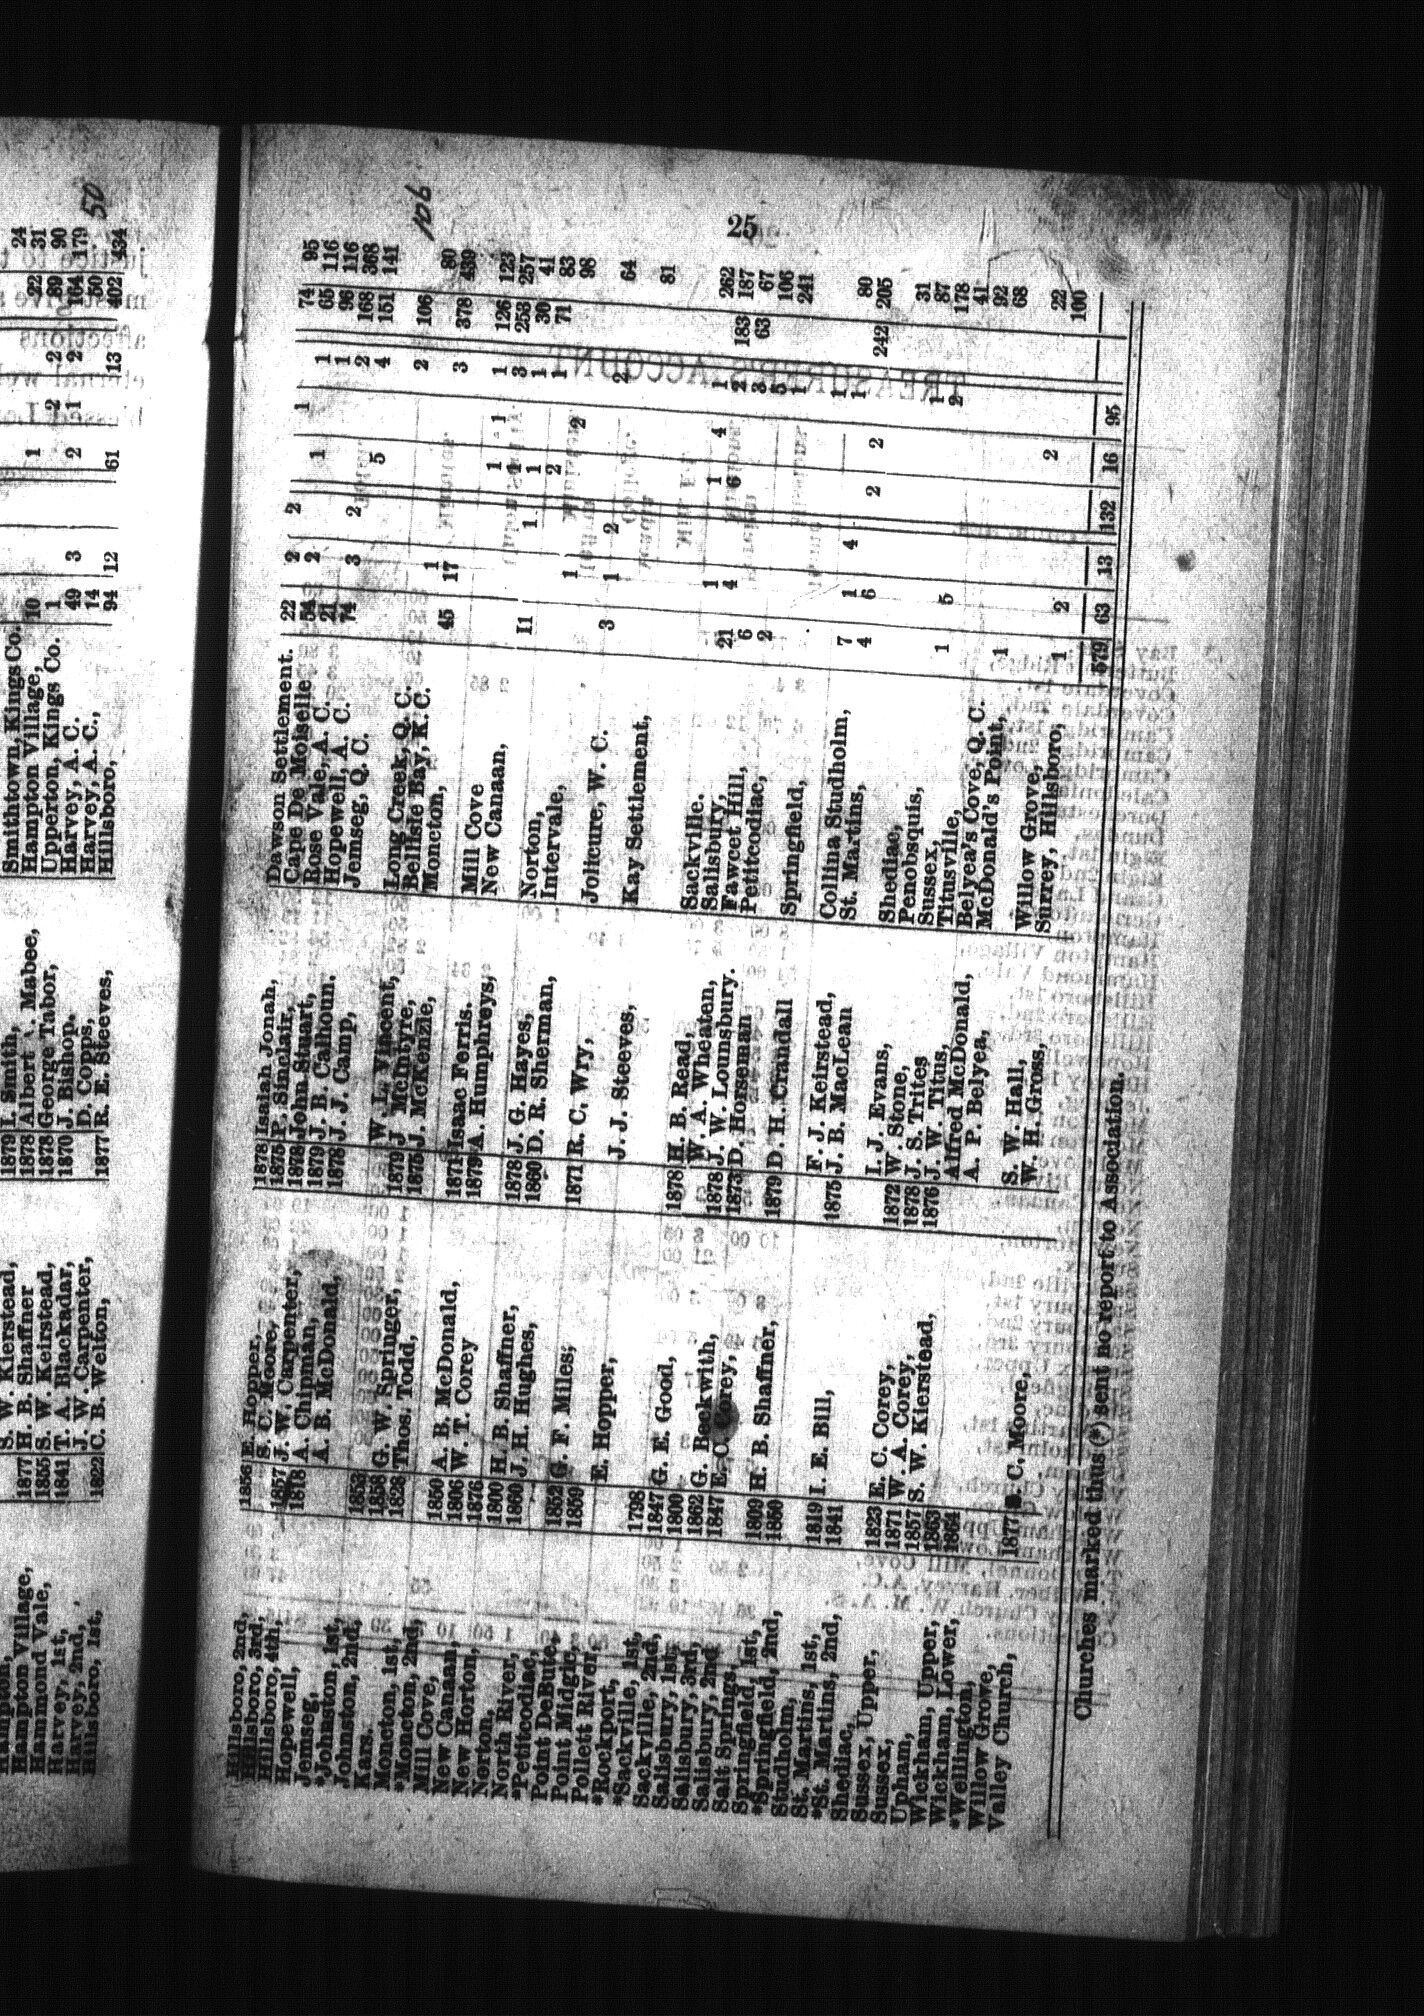 Hampton Village,
Hammond Vale,
Harvey, 1st,
Harvey, 2nd,
Hillsboro, 1st,
1877
1855
1841
1822
S. W. Kierstead,
H. B. Shaffner
S. W. Keirstead,
T. A. Blackadar,
J. W. Carpenter,
C. B. Welton,
1879
1878
1878
1870
1877
I. Smith,
Albert A. Mabee,
George Tabor,
J. Bishop.
D. Copps,
R. E. Steeves,
Smithtown, Kings Co.
Hampton Village,
Upperton, Kings Co.
Harvey, A. C.
Harvey, A. C.,
Hillsboro,
10
1
49
14
94
3
12
1
2
61
2
1
2
2
13
22
89
164
50
402
24
31
90
179
434
50
106
25
Hillsboro, 2nd,
Hillsboro, 3rd,
Hillsboro, 4th,
Hopewell,
Jemseg,
*Johnston, 1st,
Johnston, 2nd,
Kars.
Moncton, 1st,
*Moncton, 2nd,
Mill Cove,
New Canaan,
New Horton,
Norton,
North River,
*Petitcodiac,
Point DeBute,
Point Midgic,
Pollett River,
*Rockport,
*Sackville, 1st,
Sackville, 2nd,
Salisbury, 1st,
Salisbury, 3rd,
Salisbury, 2nd
Salt Springs,
Springfield, 1st,
*Springfield, 2nd,
Studholm,
St. Martins, 1st,
*St. Martins, 2nd,
Shediac,
Sussex, Upper,
Sussex,
Upham,
Wickham, Upper,
Wickham, Lower,
*Wellington,
Willow Growe,
Valley Church,
1856
1857
1818
1853
1858
1828
1850
1806
1876
1800
1860
1852
1859
1798
1847
1800
1862
1847
1809
1850
1819
1841
1823
1871
1857
1863
1864
1877
E. Hopper,
S. C. Moore,
J. W. Carpenter,
A. Chipman,
A. B. McDonald,
G. W. Springer,
Thos. Todd,
A. B. McDonald,
W. T. Corey
H. B. Shaffner,
J. H. Hughes,
G. F. Miles,
E. Hopper,
G. E. Good,
G. Beckwith,
E. C. Corey,
H. B. Shaffner,
I. E. Bill,
E. C. Corey,
W. A. Corey,
S. W. Kierstead,
S. C. Moore,
1878
1875
1878
1879
1878
1879
1875
1871
1879
1878
1860
1871
1878
1878
1873
1879
1875
1872
1878
1876
Isaiah Jonah,
P. Sinclair,
John Stuart,
J. B. Calhoun.
J. J. Camp,
W. L. Vincent,
J McIntyre,
J. McKenzie,
Isaac Ferris.
A. Humphreys,
J. G. Hayes,
D. R. Sherman,
R. C. Wry,
J. J. Steeves,
H. B. Read,
W. A. Wheaten,
J. W. Lounsbury.
D. Horseman
D. H. Crandall
F. J. Keirstead,
J. B. MacLean
I. J. Evans,
W. Stone,
J. S. Trites
J. W. Titus,
Alfred McDonald,
A. P. Belyea,
S. W. Hall,
W. H. Gross,
Dawson Settlement.
Cape De Moiselle
Rose Vale, A. C.
Hopewell, A. C.
Jemseg, Q. C.
Long Creek, Q. C.
Bellisle Bay, K. C.
Moncton,
Mill Cove
New Canaan,
Norton,
Intervale,
Jolicure, W. C.
Kay Settlement,
Sackville.
Salisbury,
Fawcet Hill,
Petitcodiac,
Springfield,
Collina Studholm,
St. Martins,
Shediac,
Penobsquis,
Sussex,
Titusville,
Belyea's Cove, Q. C.
McDonald's Point,
Willow Grove,
Surrey, Hillsboro,
22
54
21
74
45
11
3
21
6
2
7
4
1
1
1
579
2
2
3
1
17
1
1
1
4
1
6
5
2
63
2
2
1
2
4
13
1
5
1
1
1
2
1
6
2
132
1
1
2
4
2
2
16
1
1
2
4
2
3
1
3
1
1
2
1
2
3
5
1
1
1
1
2
95
74
65
96
168
151
106
378
126
253
30
71
183
63
242
95
116
116
368
141
80
439
123
257
41
83
98
64
81
262
187
67
106
241
80
205
31
87
178
41
92
68
22
100
Churches marked thus (*) sent no report to Association.